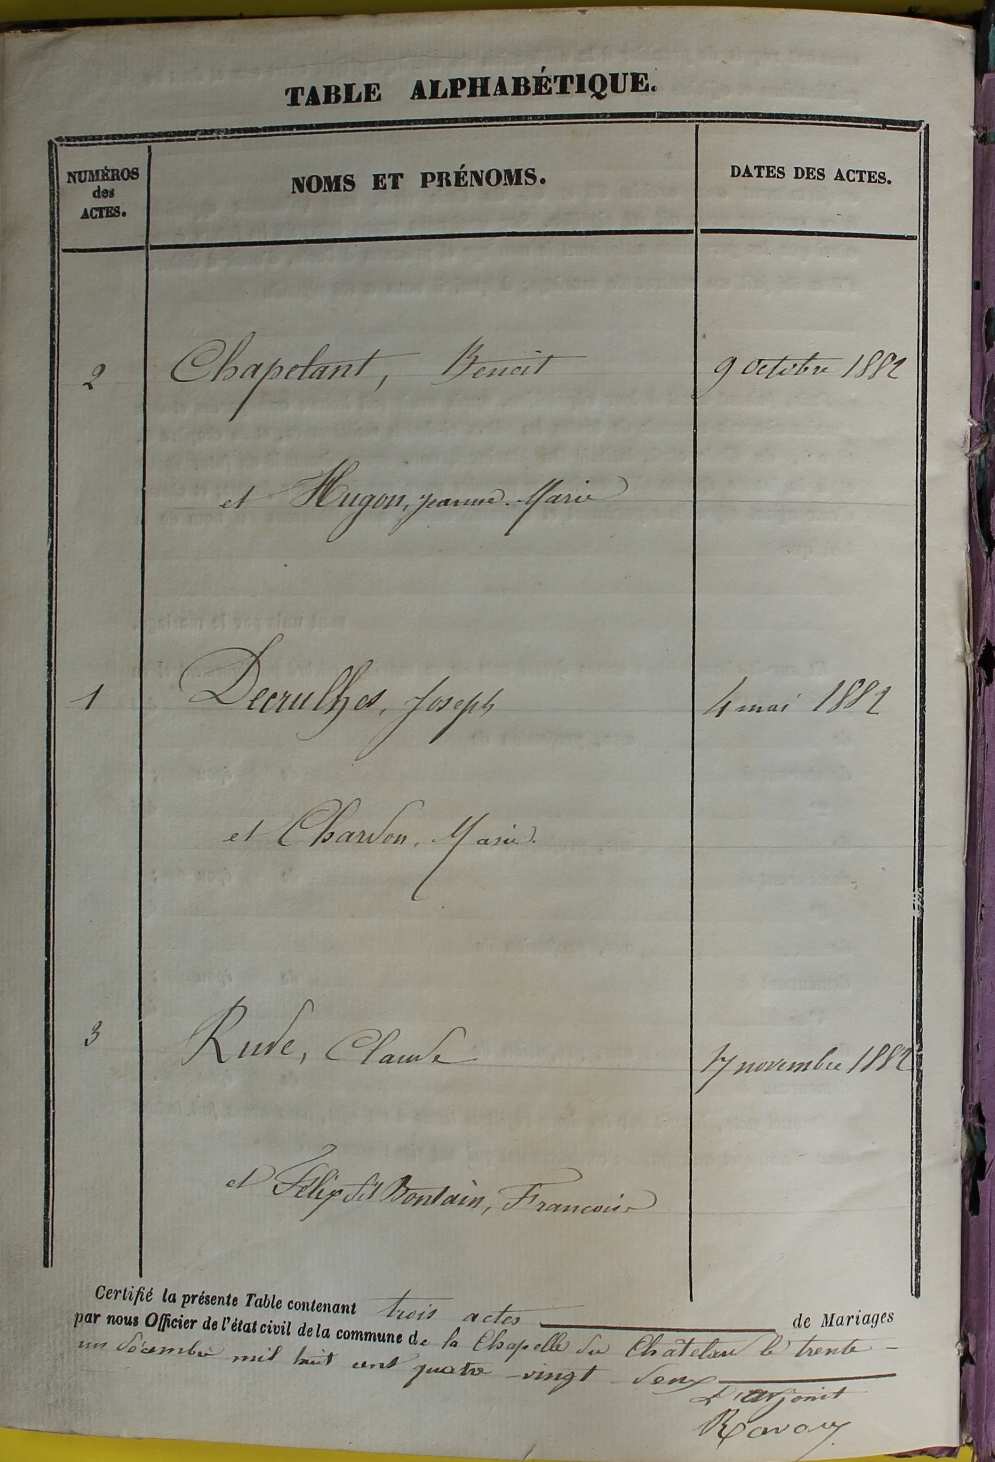 TABLE ALPHABÉTIQUE.
NUMÉROS
des
ACTES.
NOMS ET PRÉNOMS.
DATES DES ACTES.
2 Chapelant, Benoit 9 octobre 1882
et Hugon, Jeanne Marie
1 Decrulhes, Joseph 4 mai 1882
et Chardon, Marie
3 Rude, Claude 17 novembre 1882
et Félix dit Bontain, Francoise
Certifié la présente Table contenant trois actes de Mariages
par nous Officier de l'état civil de la commune de la Chapelle du Châtelard le trente-
un décembre mil huit cent quatre-vingt deux
L'adjoint